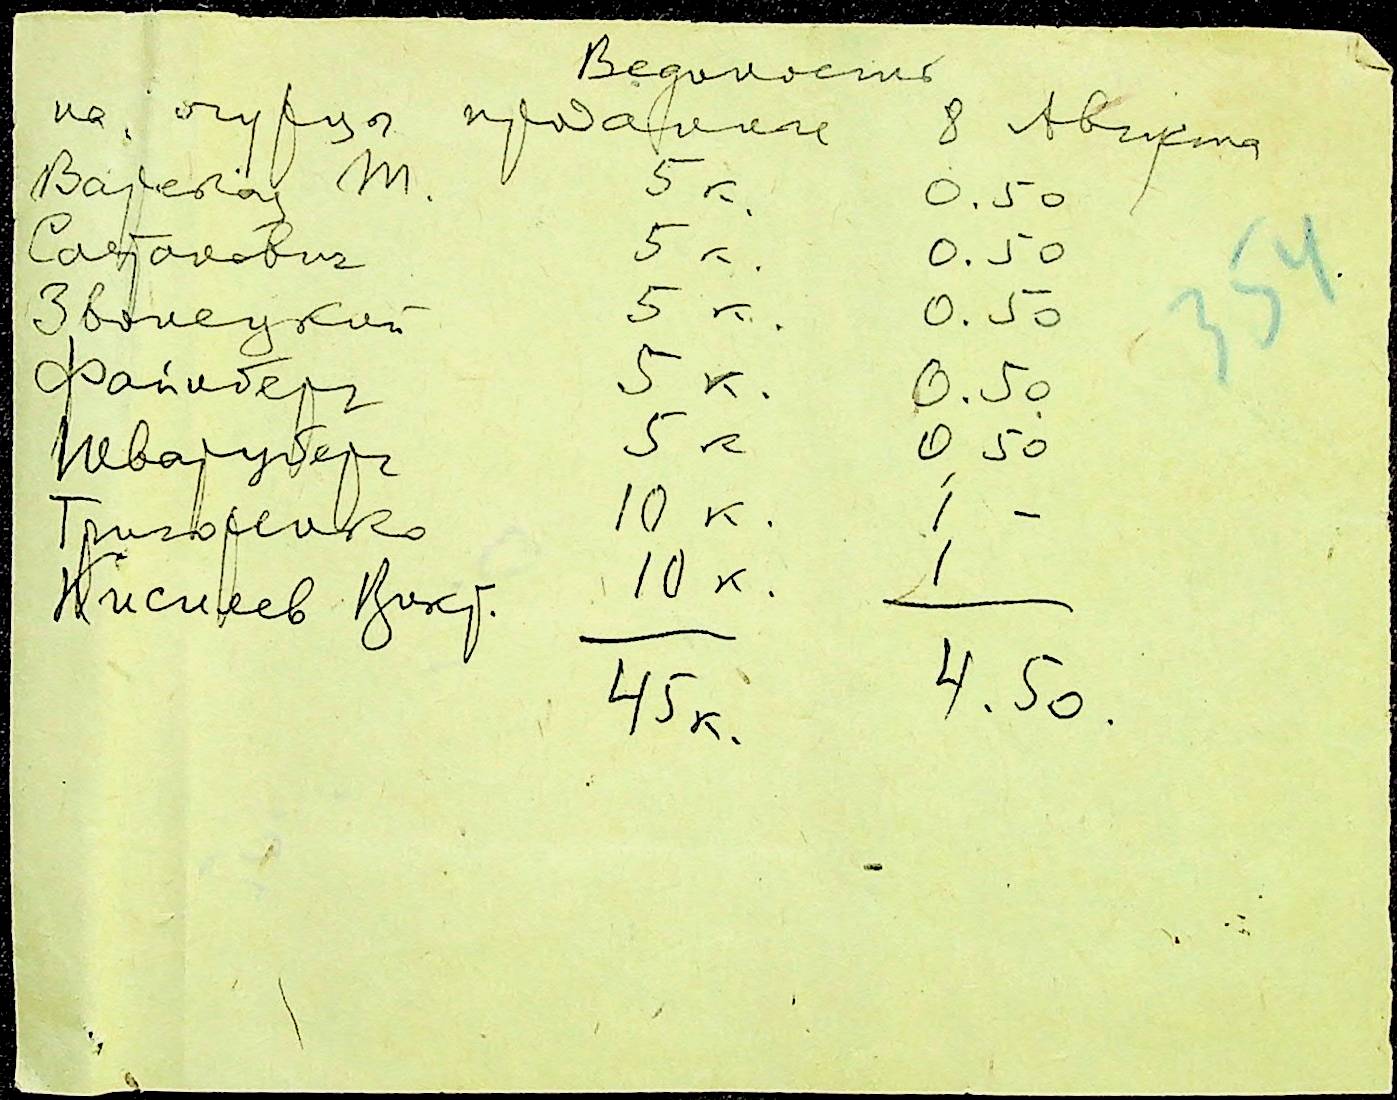 Ведомость
на огурцы проданные 8 Августа
М. 5 к. 0.50
5 к. 0.50
Звонецкий 5 к. 0.50
Файнберг 5 к. 0.50
Шварцберг 5 к 0 50
Григоренко 10 к. 1 -
Киселев Викт. 10 к. 1
45 к. 4.50.
354.